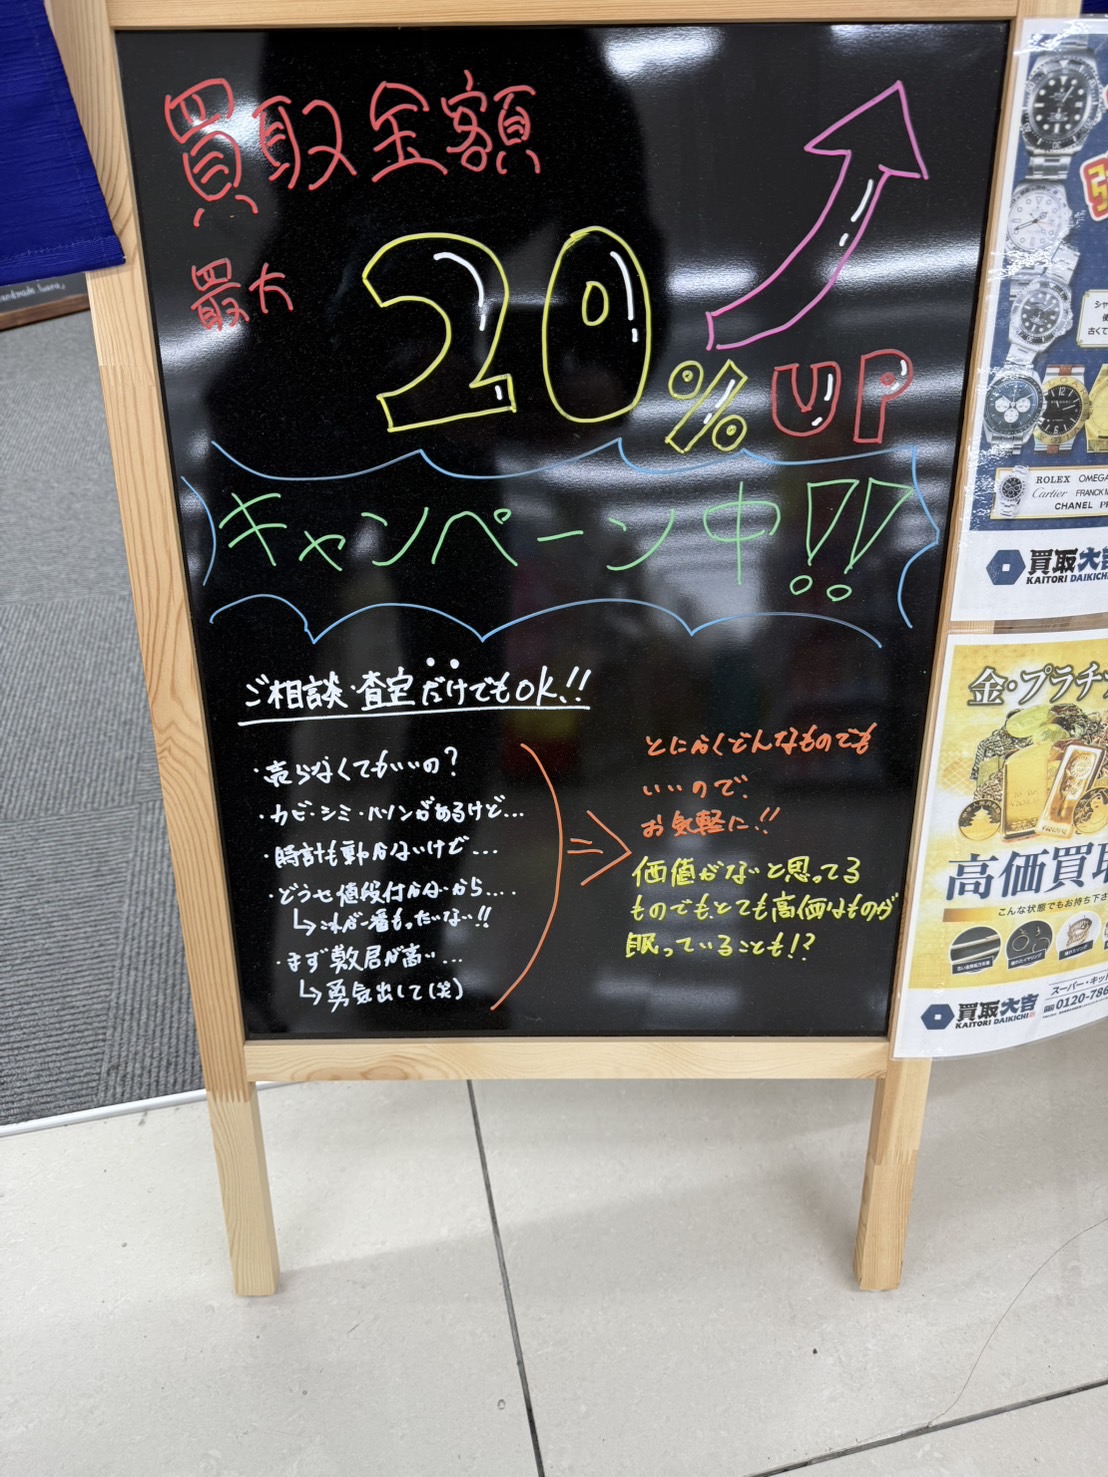 買取金額
最大 20%UP
キャンペーン中!!
ご相談・査定だけでもOK!!
・売らなくてもいいの?
・カビ・シミ・ハソンがあるけど...
・時計も動かないけど...
・どうせ値段付かないから....
↳これが一番もったいない!!
・まず敷居が高い...
↳勇気出して(笑)
⇒
とにかくどんなものでも
いいので、
お気軽に!!
価値がないと思ってる
ものでも、とても高価なものが
眠っていることも!?
ROLEX OMEGA
Cartier FRANCK M
CHANEL
買取大吉
KAITORI DAIKICHI
金・プラチナ
高価買取
こんな状態でもお持ち下さ
買取大吉
KAITORI DAIKICHI
スーパー・キッ
0120-786